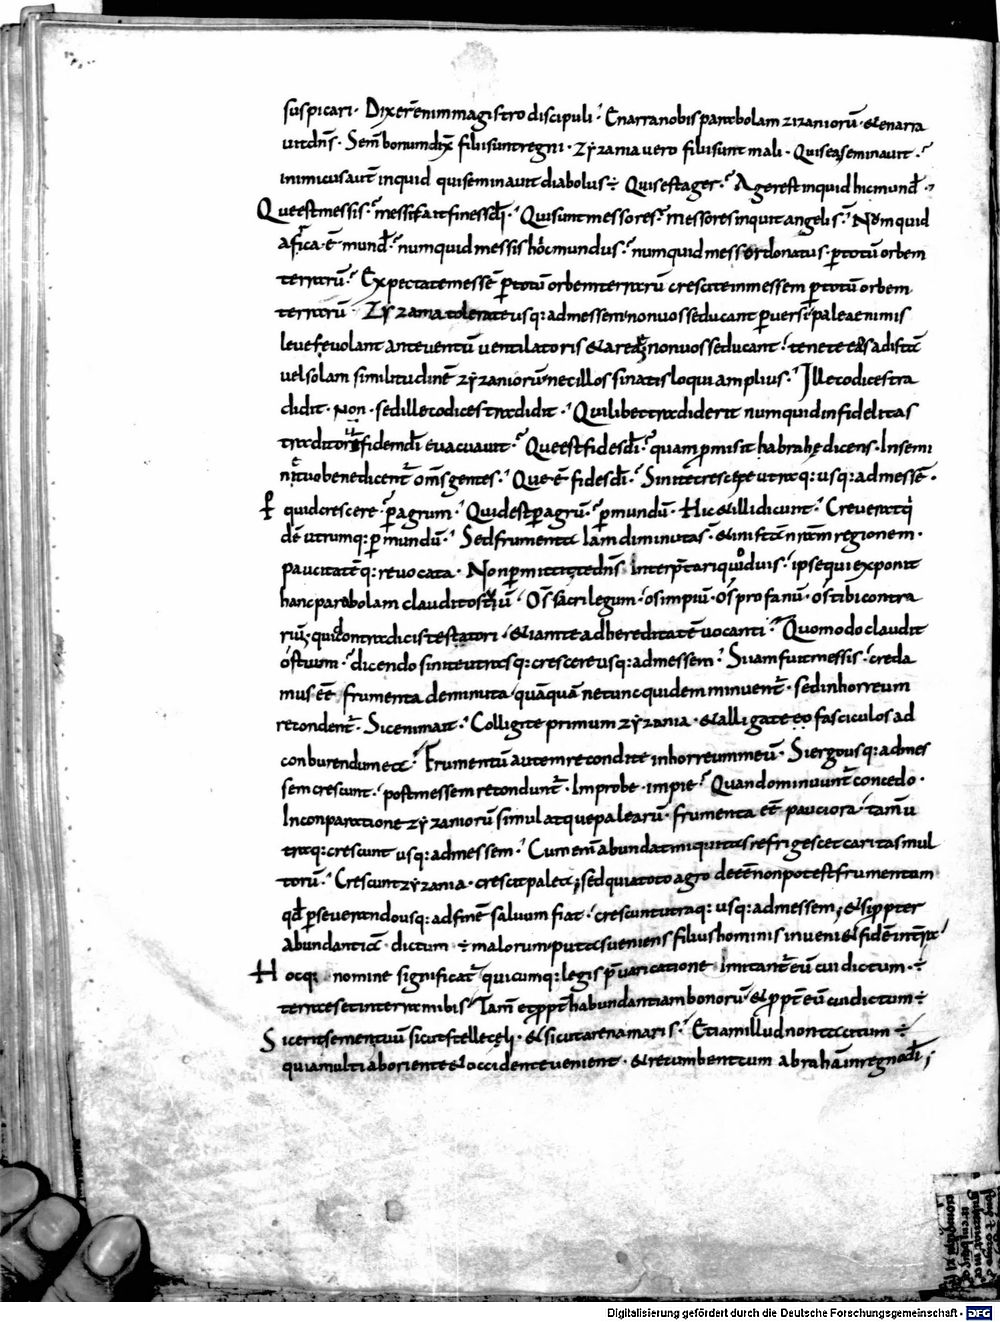 suspicari · Dixer̄ enim magistro discipuli · Enarra nobis parabolam zizaniorū · & enarra
uit dn̄s · Sem̄ bonum dix̄ filii sunt regni · zyzania uero filii sunt mali · Quis ea seminauit ·
inimicus aut̄ inquid qui seminauit diabolus ÷ Quis est ager · Ager est inquid hic mund
Que est messis · messis ait finis scl̄i · Qui sunt messores · messores inquit angeli s̄ · Numquid
africa ē mund · numquid messis hoc mundus · numquid messor donatus · p totū orbem
terrarū · Expectate messē p totū orbem terrarū crescite in messem p totū orbem
terrarū · Zyzania tolerate usq: ad messem non uos seducant peruersi paleae nimis
leues euolant ante uentū uentilatoris & area non uos seducant · tenete eos ad istā
uel solam similitudinē zyzaniorū nec illos sinatis loqui amplius · Ille codices tra
didit · Non · sed ille codices tradidit · Quilibet tradiderit numquid infidelitas
traditorū fidem dī euacuauit · Que est fides dī · quam pmisit habrahę dicens · In semi
ne tuo benedicent̄ om̄s gentes · Que ē fides dī · Sinite crescere utraq: usq: ad messē ·
quid crescere p agrum · Quid est p agrū · p mundū · Hic & illi dicunt · Creuerat q
dē utrumq: p mundū · Sed frumenta iam diminutas & in istā nr̄am regionem ·
paucitatēq: reuocata · Non pmittit te dn̄s interptari quod uis · ipse qui exponit
hanc parabolam claudit os tuū · Os sacrilegum · os impiū · Os profanū · os tibi contra
riū, qui contradicis testatori · & iam te ad hereditatē uocanti · Quomodo claudit
os tuum · dicendo sinite utrasq: crescere usq: ad messem · Si iam fuit messis · creda
mus eē frumenta deminuta quāquā ne tunc quidem minuent̄ · sed in horreum
recondent̄ · Sic enim ait · Colligite primum zyzania · & alligate eo fasciculos ad
conburendum ea · Frumentū autem recondite in horreum meū · Si ergo usq: ad mes
sem crescunt · post messem recondunt̄ · Improbe · impie · Quando minuunt̄ concedo ·
In conparatione zyzaniorū simul atque palearū · frumenta eē pauciora · tam̄ u
traq: crescunt usq: ad messem · Cum em̄ abundat iniquitas refrigescet caritas mul
torū · Crescunt zyzania · crescit palea; sed quia toto agro deeē non potest frumentum
qd pseuerando usq: ad finē saluum fiat · crescunt utraq: usq: ad messem; & si ppter
abundantiā dictum ÷ malorum putas ueniens filius hominis inueni& fidē in terra
Hocq: nomine significat̄ quicumq: legis pūaricatione imitant̄ eū cui dictum ÷
terra es et in terram ibis · Tam̄ et ppt̄ habundantiam bonorū & ppt̄ eū cui dictum ÷
Sic erit semen tuū sicut stelle cęli · & sicut arena maris · Etiam illud non tacitum ÷
quia multi ab oriente & occidente uenient · & recumbent cum abrahā in regno dī;
Digitalisierung gefördert durch die Deutsche Forschungsgemeinschaft · DFG